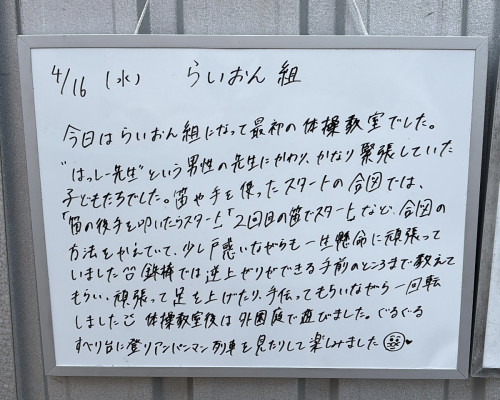 4/16 (水) らいおん組
今日はらいおん組になって最初の体操教室でした。
"はっしー先生"という男性の先生にかわり、かなり緊張していた
子どもたちでした。笛や手を使ったスタートの合図では、
「笛の後手を叩いたらスタート」「2回目の笛でスタート」など、合図の
方法をかえていて、少し戸惑いながらも一生懸命に頑張って
いました 鉄棒では逆上がりができる手前のところまで教えて
もらい、頑張って足を上げたり、手伝ってもらいながら一回転
しました 体操教室後は外園庭で遊びました。ぐるぐる
すべり台に登りアンパンマン列車を見たりして楽しみました